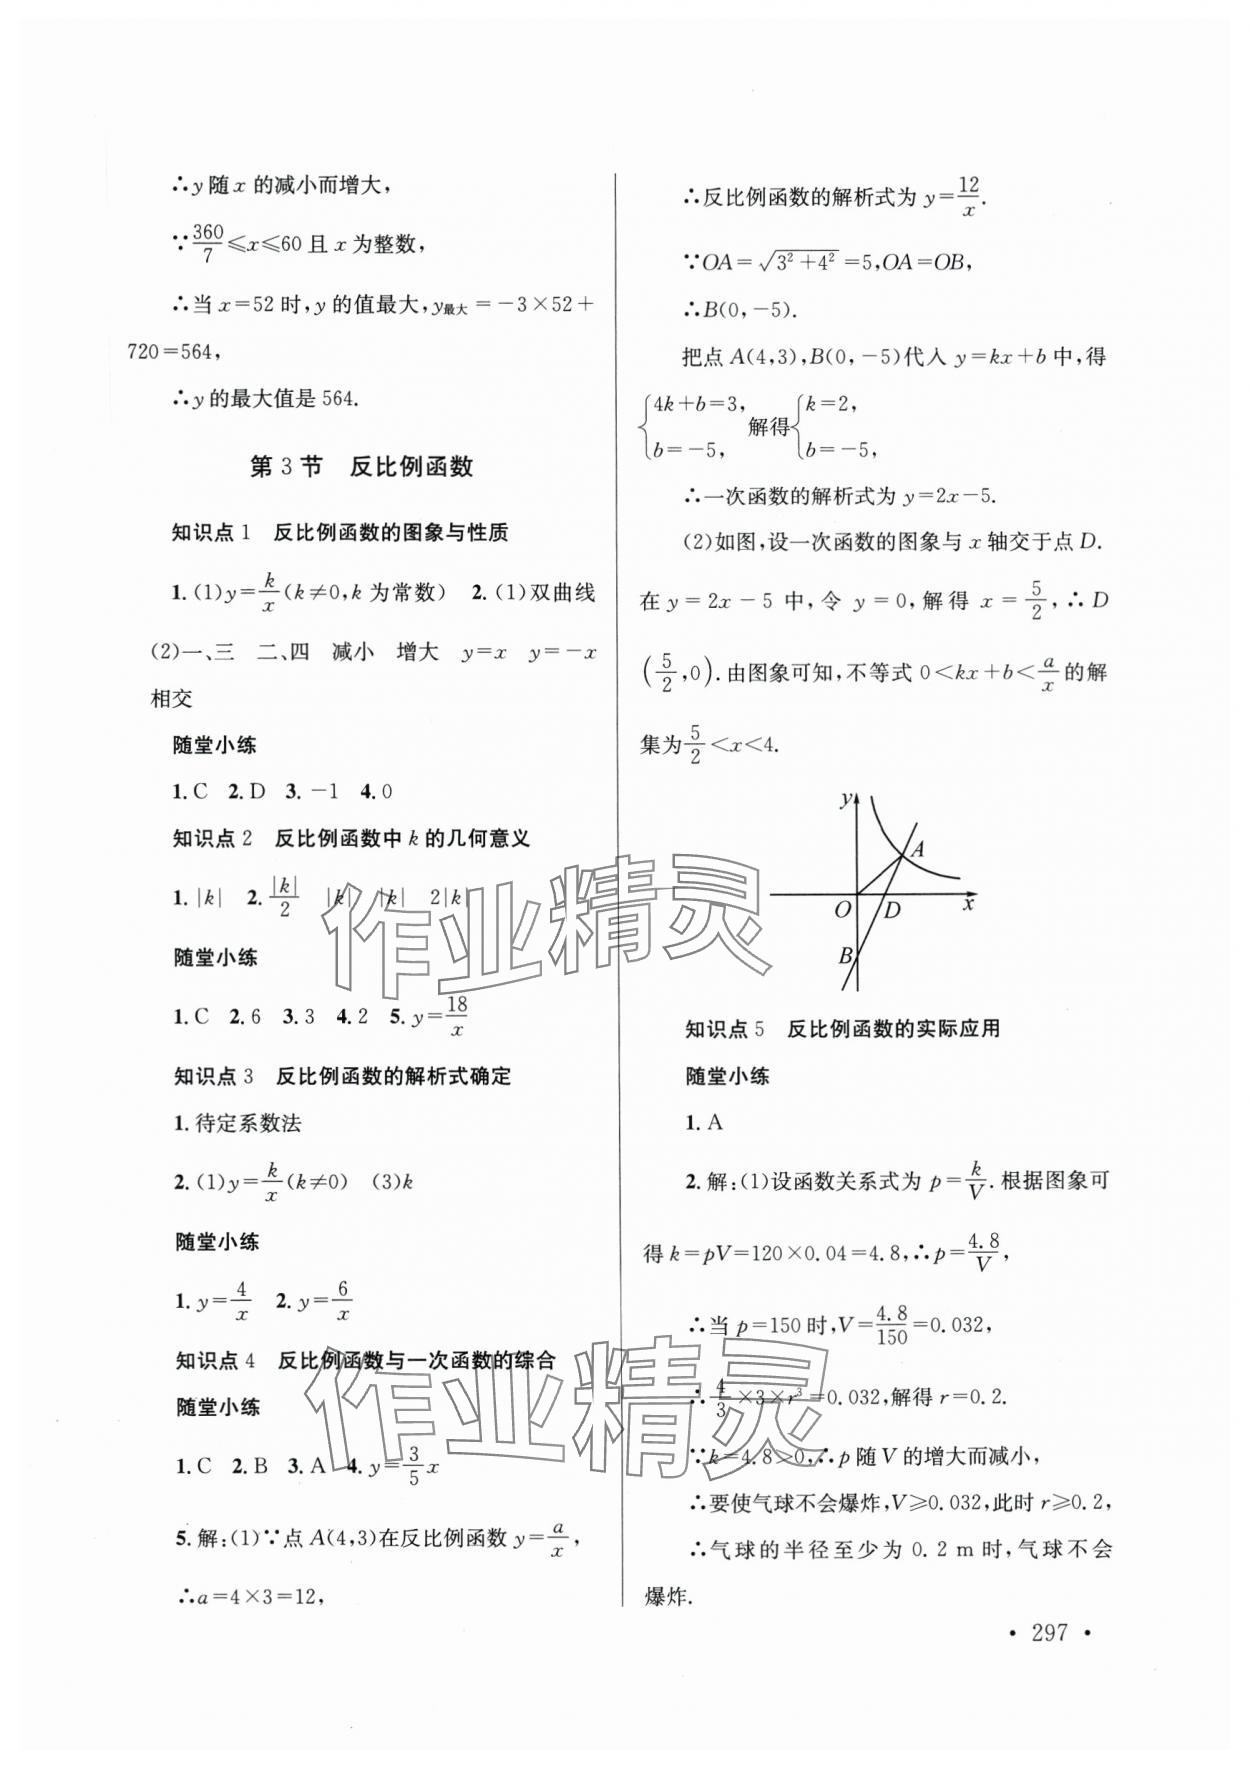 ∴y随x的减小而增大,
∵360/7≤x≤60且x为整数,
∴当x=52时,y的值最大,y最大=-3×52+
720=564,
∴y的最大值是564.
第3节 反比例函数
知识点1 反比例函数的图象与性质
1.(1)y=k/x(k≠0,k为常数) 2.(1)双曲线
(2)一、三 二、四 减小 增大 y=x y=-x
相交
随堂小练
1.C 2.D 3.-1 4.0
知识点2 反比例函数中k的几何意义
1.|k| 2.|k|/2 |k| |k| 2|k|
随堂小练
1.C 2.6 3.3 4.2 5.y=18/x
知识点3 反比例函数的解析式确定
1.待定系数法
2.(1)y=k/x(k≠0) (3)k
随堂小练
1.y=4/x 2.y=6/x
知识点4 反比例函数与一次函数的综合
随堂小练
1.C 2.B 3.A 4.y=3/5x
5.解:(1)∵点A(4,3)在反比例函数y=a/x,
∴a=4×3=12,
∴反比例函数的解析式为y=12/x.
∵OA=√(3²+4²)=5,OA=OB,
∴B(0,-5).
把点A(4,3),B(0,-5)代入y=kx+b中,得
{4k+b=3, b=-5, 解得{k=2, b=-5,
∴一次函数的解析式为y=2x-5.
(2)如图,设一次函数的图象与x轴交于点D.
在y=2x-5中,令y=0,解得x=5/2,∴D
(5/2,0).由图象可知,不等式0<kx+b<a/x的解
集为5/2<x<4.
y
A
O
D
x
B
知识点5 反比例函数的实际应用
随堂小练
1.A
2.解:(1)设函数关系式为p=k/V.根据图象可
得k=pV=120×0.04=4.8,∴p=4.8/V,
∴当p=150时,V=4.8/150=0.032,
∴4/3×3×r³=0.032,解得r=0.2.
∵k=4.8>0,∴p随V的增大而减小,
∴要使气球不会爆炸,V≥0.032,此时r≥0.2,
∴气球的半径至少为0.2m时,气球不会
爆炸.
·297·
作业精灵
作业精灵